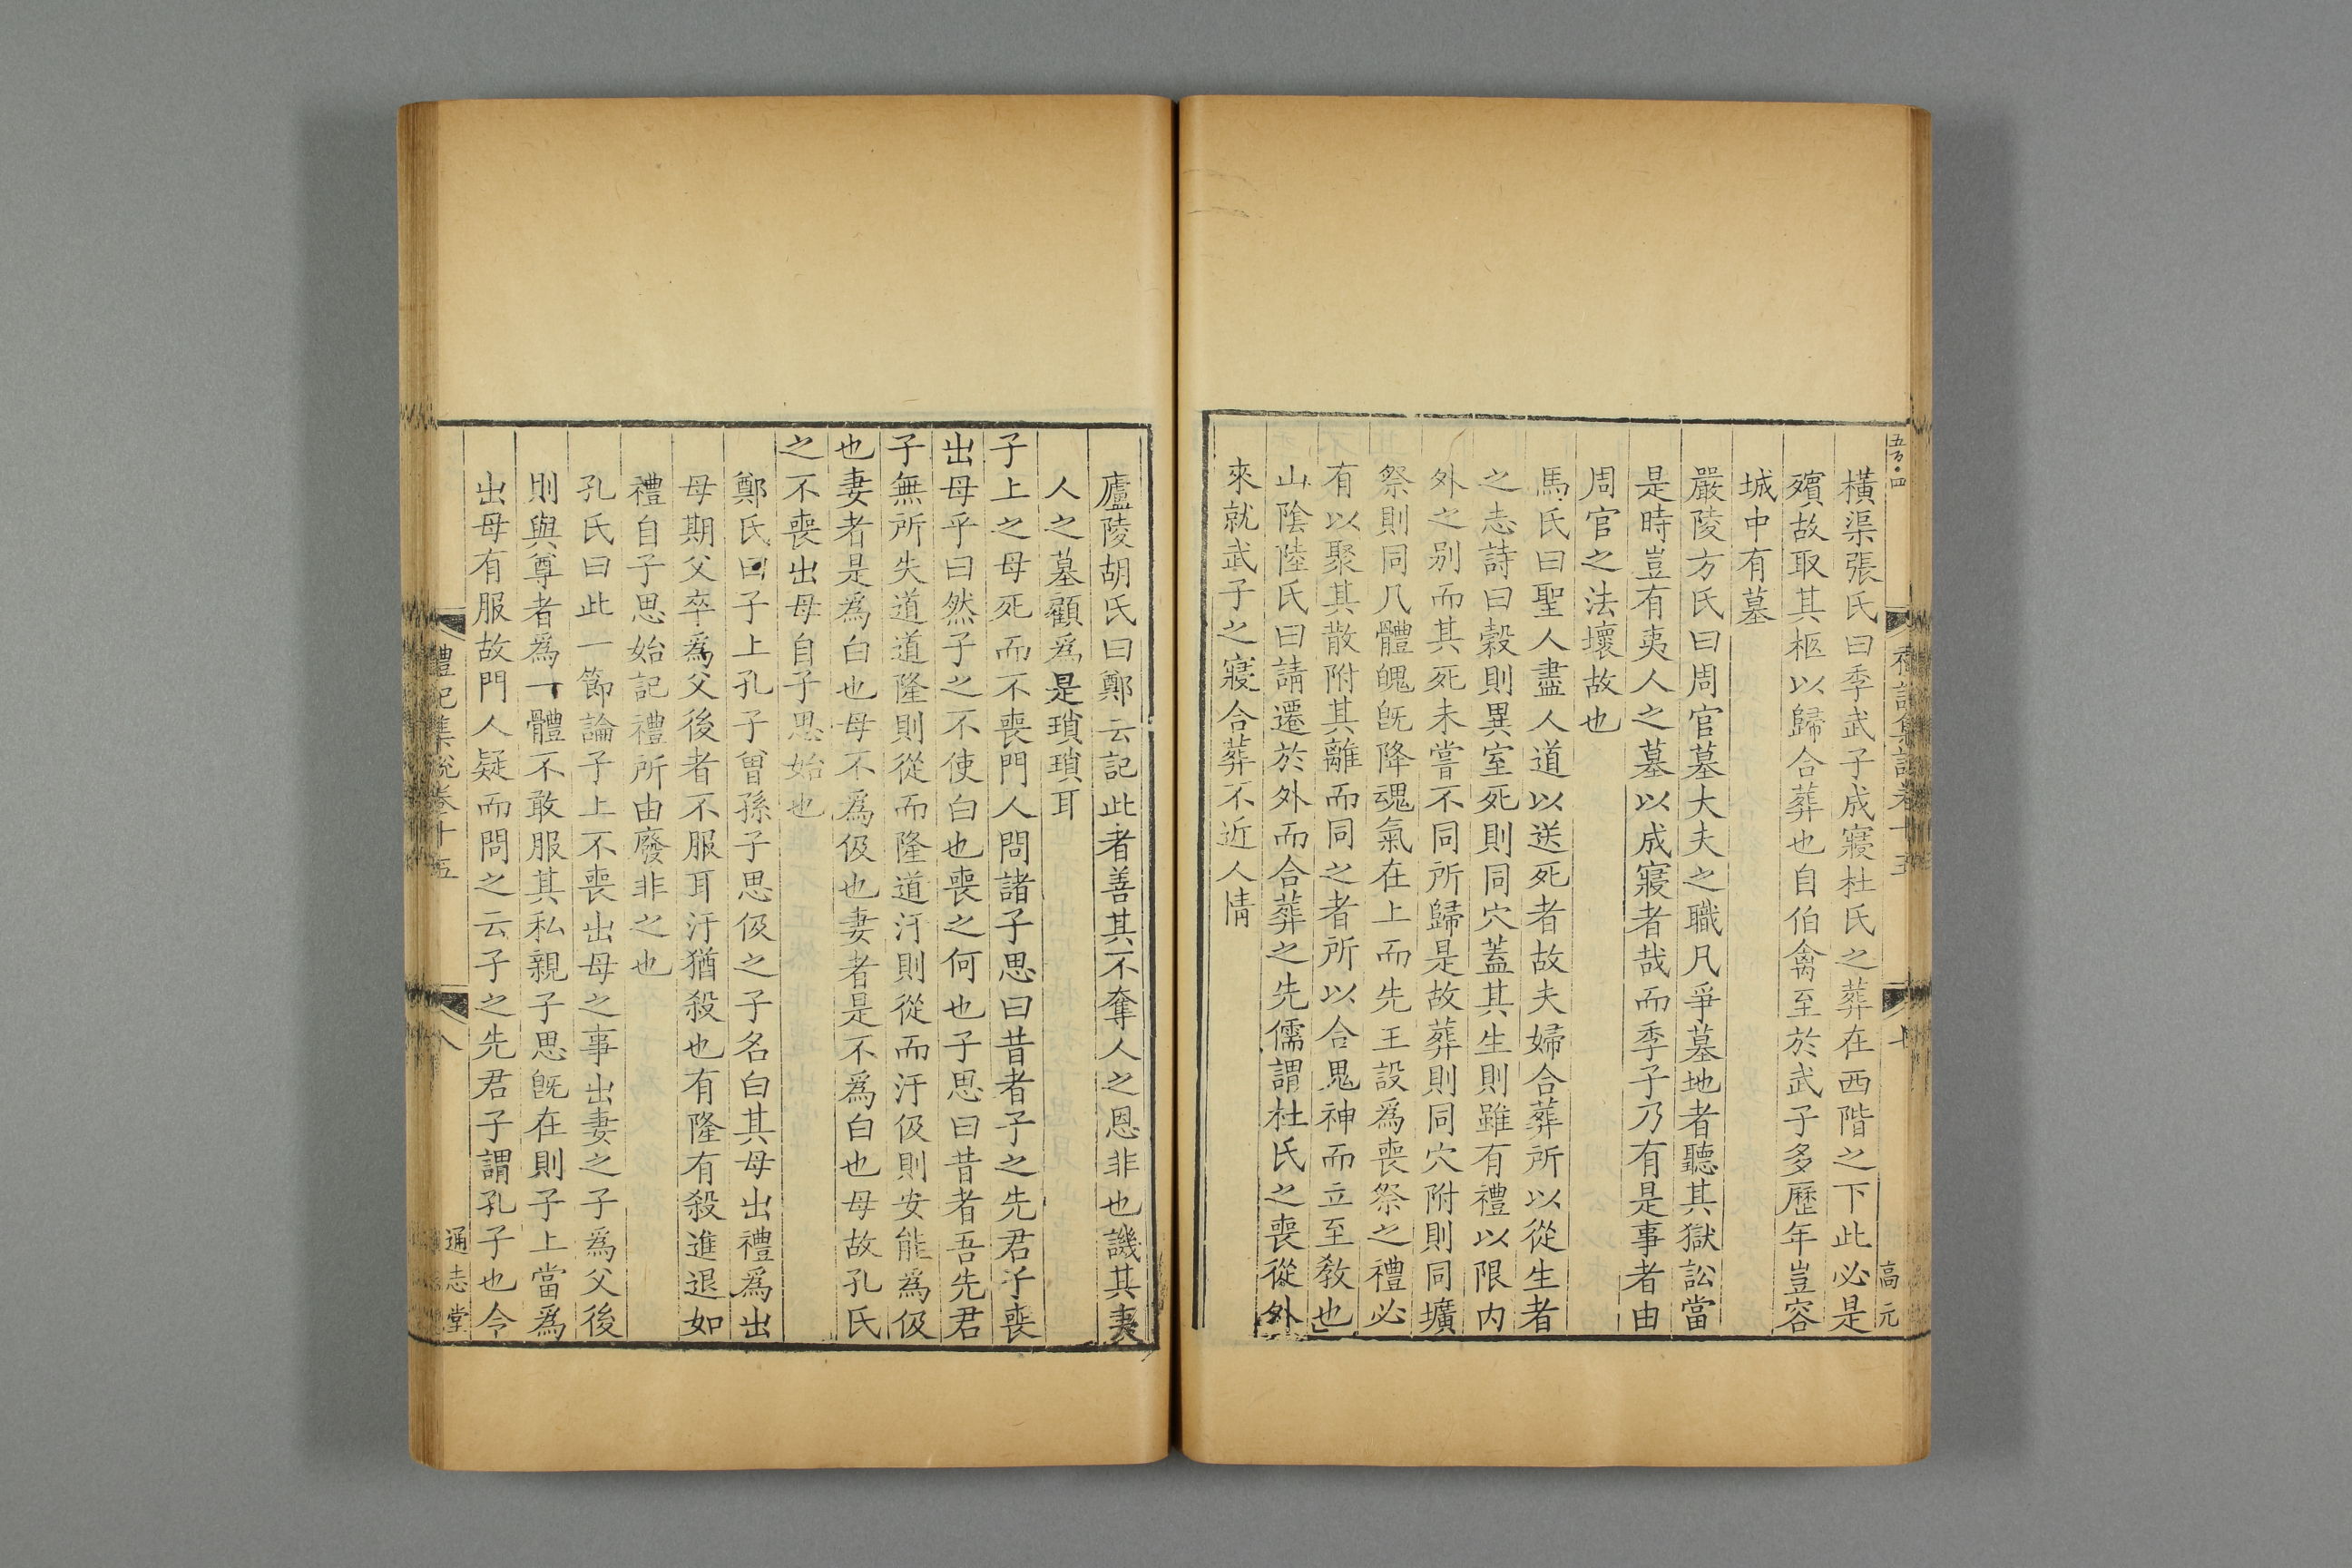 橫渠張氏曰季武子成寢杜氏之葬在西階之下此必是
殯故取其柩以歸合葬也自伯禽至於武子多歷年豈容
城中有墓
嚴陵方氏曰周官墓大夫之職凡爭墓地者聽其獄訟當
是時豈有夷人之墓以成寢者哉而季子乃有是事者由
周官之法壞故也
馬氏曰聖人盡人道以送死者故夫婦合葬所以從生者
之志詩曰榖則異室死則同穴蓋其生則雖有禮以限内
外之别而其死未嘗不同所歸是故葬則同穴附則同壙
祭則同几體魄旣降魂氣在上而先王設爲喪祭之禮必
有以聚其散附其離而同之者所以合鬼神而立至敎也
山隂陸氏曰請遷於外而合葬之先儒謂杜氏之喪從外
來就武子之寢合葬不近人情
高元
廬陵胡氏曰鄭云記此者善其不奪人之恩非也譏其夷
人之墓顧爲是瑣瑣耳
子上之母死而不喪門人問諸子思曰昔者子之先君子喪
出母乎曰然子之不使白也喪之何也子思曰昔者吾先君
子無所失道道隆則從而隆道汙則從而汙伋則安能爲伋
也妻者是爲白也母不爲伋也妻者是不爲白也母故孔氏
之不喪出母自子思始也
鄭氏曰子上孔子曾孫子思伋之子名白其母出禮爲出
母期父卒爲父後者不服耳汙猶殺也有隆有殺進退如
禮自子思始記禮所由廢非之也
孔氏曰此一節論子上不喪出母之事出妻之子爲父後
則與尊者爲一體不敢服其私親子思旣在則子上當爲
出母有服故門人疑而問之云子之先君子謂孔子也令
禮記集說卷十五
八
通志堂